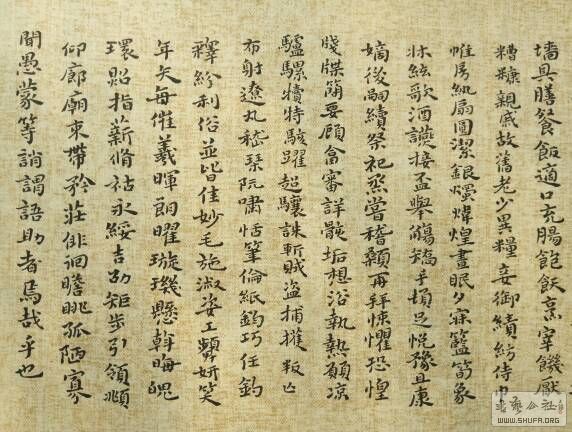 墙具膳餐飯適口充腸飽飫烹宰饑厭
糟糠親戚故舊老少異糧妾御績紡侍巾
帷房紈扇圓潔銀燭煒煌晝眠夕寐籃筍象
牀絃歌酒讌接盃舉觴矯手頓足悅豫且康
嫡後嗣續祭祀蒸嘗稽顙再拜悚懼恐惶
牋牒簡要顧畣審詳骸垢想浴執熱願涼
驢騾犢特駭躍超驤誅斬賊盜捕獲叛亡
布射遼丸嵇琴阮嘯恬筆倫紙鈞巧任釣
釋紛利俗並皆佳妙毛施淑姿工顰妍笑
年矢每催羲暉朗曜璇璣懸斡晦魄
環照指薪脩祜永綏吉劭矩步引領俯
仰廊廟束帶矜莊徘徊瞻眺孤陋寡
聞愚蒙等誚謂語助者焉哉乎也
书法公社
WWW.SHUFA.ORG